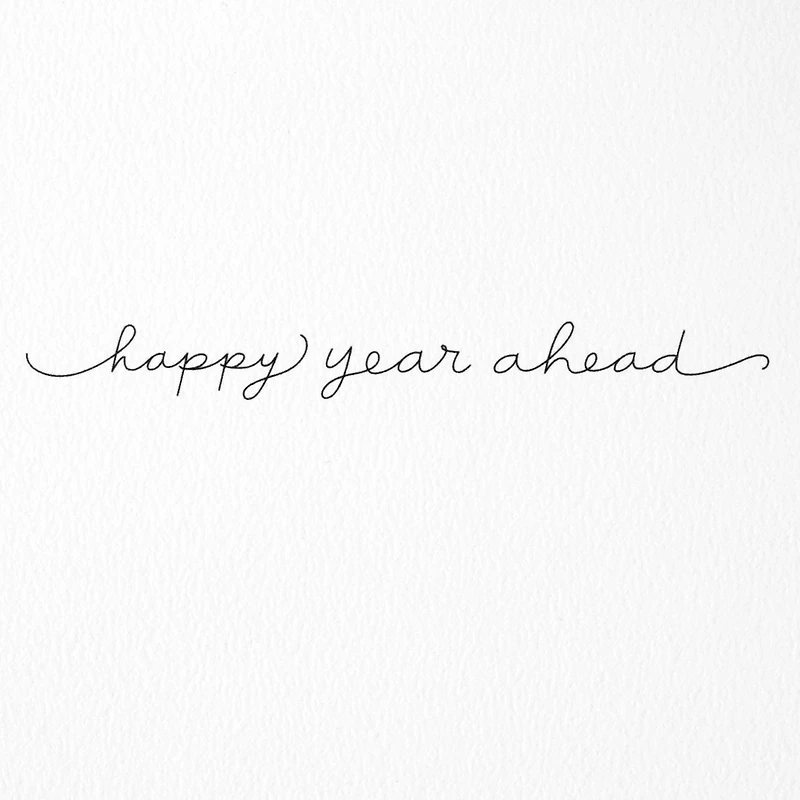 happy year ahead